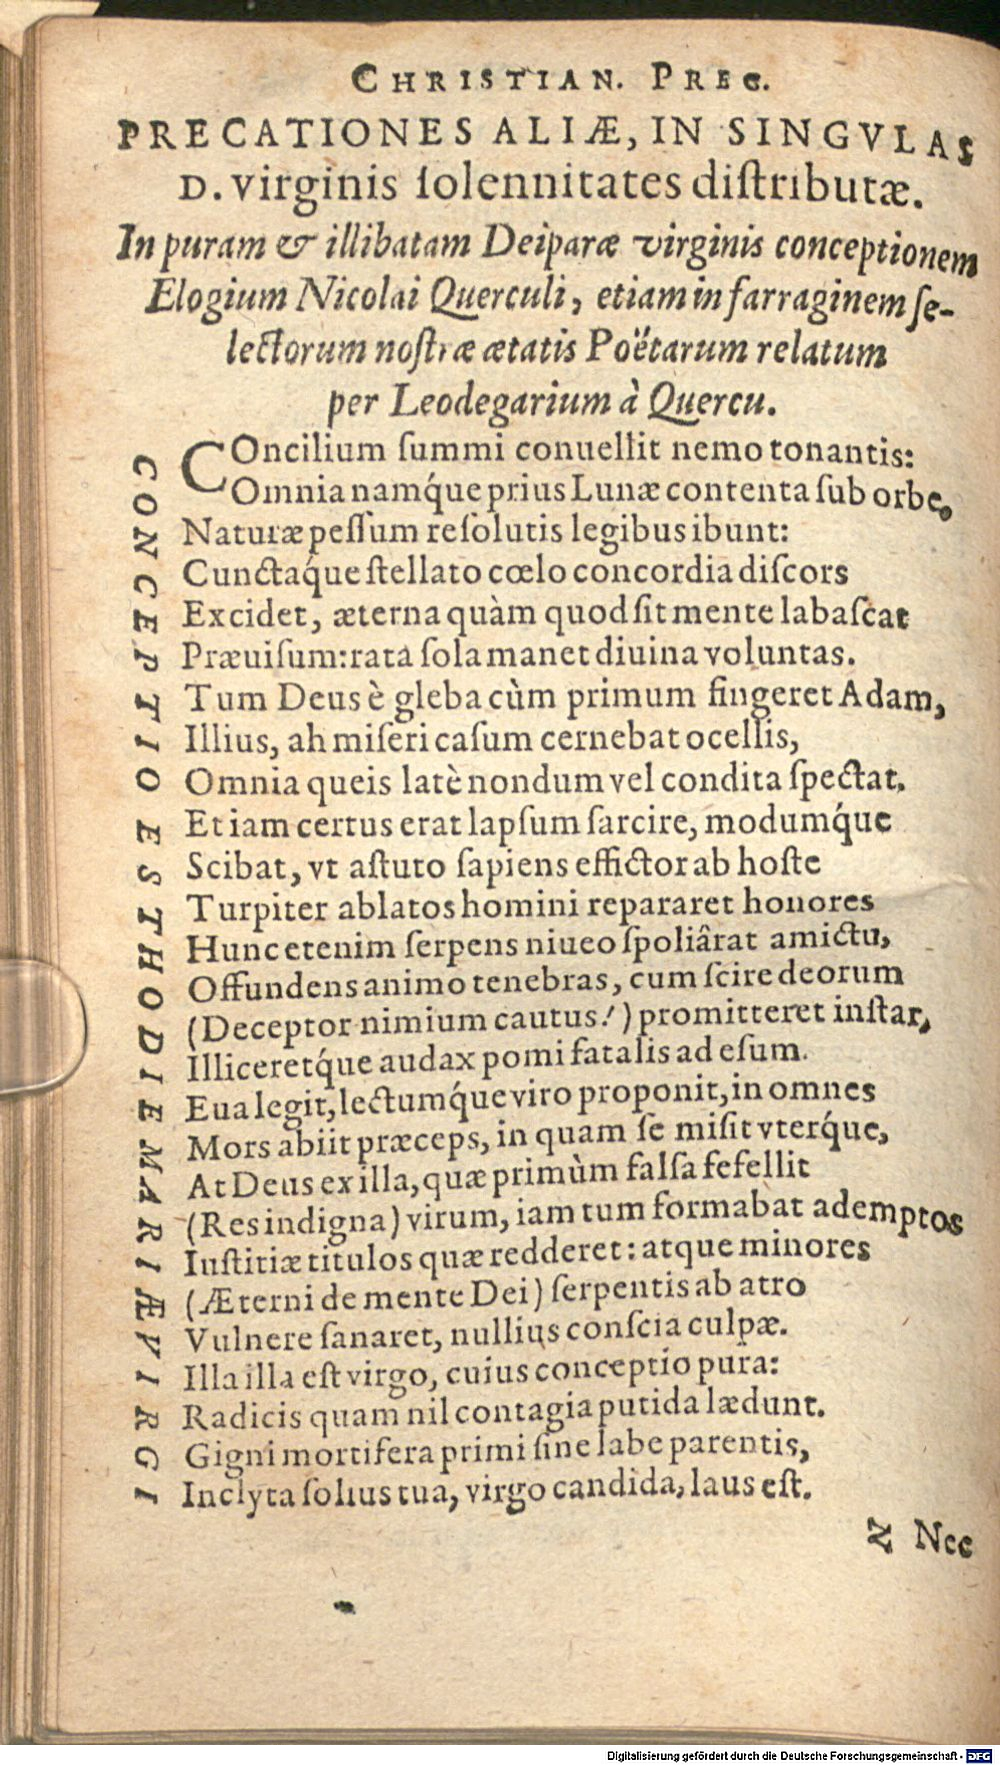 CHRISTIAN. PREC.
PRECATIONES ALIÆ, IN SINGVLAS
D. virginis ſolennitates diſtributæ.
In puram & illibatam Deiparæ virginis conceptionem
Elogium Nicolai Querculi, etiam in farraginem ſe-
lectorum noſtræ ætatis Poëtarum relatum
per Leodegarium à Quercu.
COncilium ſummi conuellit nemo tonantis:
Omnia namq́ue prius Lunæ contenta ſub orbe,
Naturæ peſſum reſolutis legibus ibunt:
Cunctaq́ue ſtellato cœlo concordia diſcors
Excidet, æterna quàm quod ſit mente labaſcat
Præuiſum: rata ſola manet diuina voluntas.
Tum Deus è gleba cùm primum fingeret Adam,
Illius, ah miſeri caſum cernebat ocellis,
Omnia queis latè nondum vel condita ſpectat.
Et iam certus erat lapſum ſarcire, modumq́ue
Scibat, vt aſtuto ſapiens effictor ab hoſte
Turpiter ablatos homini repararet honores
Hunc etenim ſerpens niueo ſpoliârat amictu,
Offundens animo tenebras, cum ſcire deorum
(Deceptor nimium cautus!) promitteret inſtar,
Illiceretq́ue audax pomi fatalis ad eſum.
Eua legit, lectumq́ue viro proponit, in omnes
Mors abiit præceps, in quam ſe miſit vterq́ue,
At Deus ex illa, quæ primùm falſa fefellit
(Res indigna) virum, iam tum formabat ademptos
Iuſtitiæ titulos quæ redderet: atque minores
(Æterni de mente Dei) ſerpentis ab atro
Vulnere ſanaret, nullius conſcia culpæ.
Illa illa eſt virgo, cuius conceptio pura:
Radicis quam nil contagia putida lædunt.
Gigni mortifera primi ſine labe parentis,
Inclyta ſolius tua, virgo candida, laus eſt.
CONCEPTIO EST HODIE MARIÆ VIRGI
Z Nec
Digitalisierung gefördert durch die Deutsche Forschungsgemeinschaft - DFG